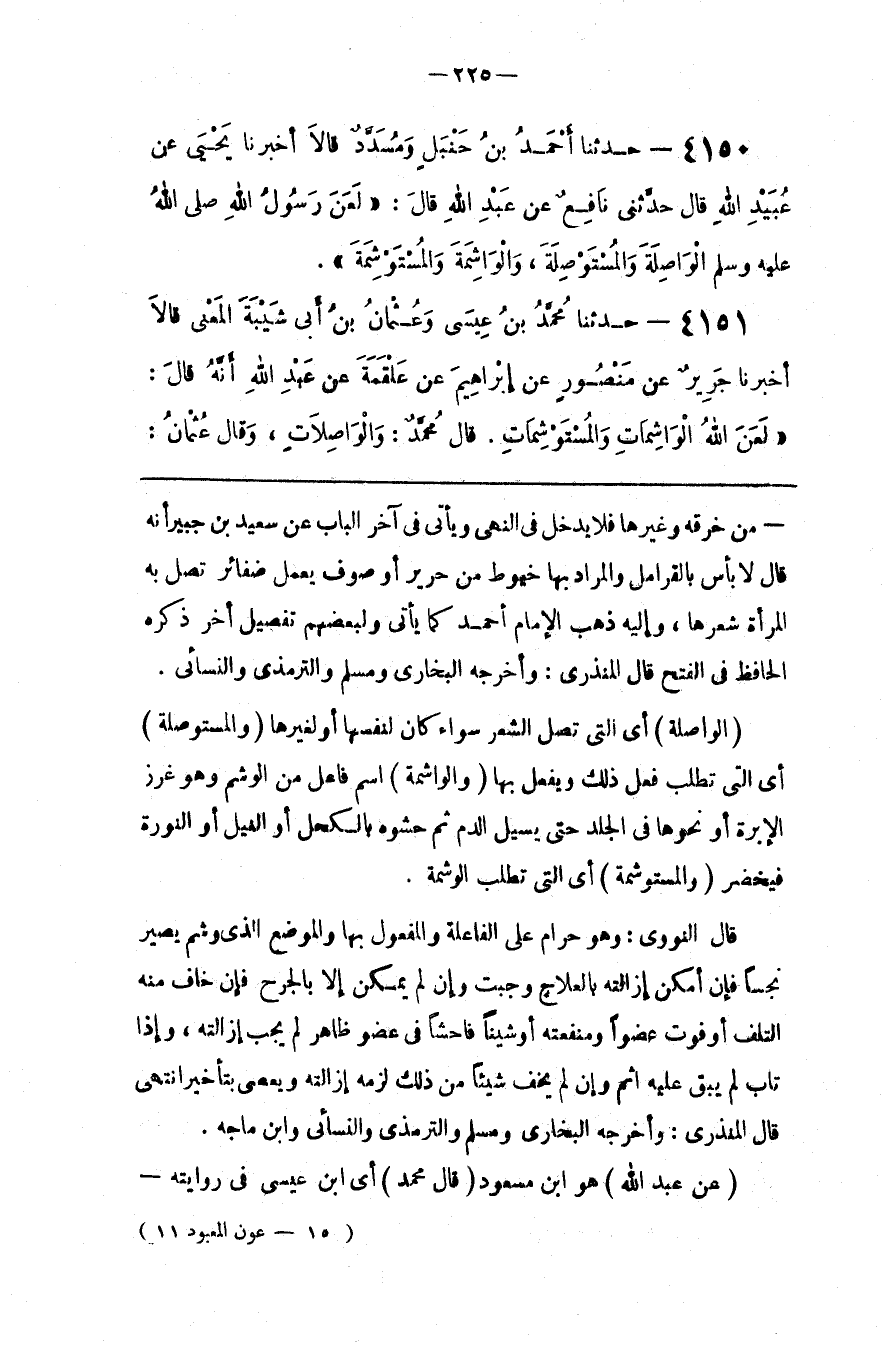 — ٢٢٥ —
٤١٥٠ — حدثنا أَحْمَدُ بنُ حَنْبَلٍ وَمُسَدَّدٌ قالاَ أخبرنا يَحْيَى عن
عُبَيْدِ اللهِ قال حدَّثنى نَافِعٌ عن عَبْدِ اللهِ قالَ : « لَعَنَ رَسُولُ اللهِ صلى اللهُ
عليه وسلم الْوَاصِلَةَ وَالْمُسْتَوْصِلَةَ ، وَالْوَاشِمَةَ وَالْمُسْتَوْشِمَةَ » .
٤١٥١ — حدثنا مُحَمَّدُ بنُ عِيسَى وَعُثْمانُ بنُ أَبى شَيْبَةَ الْمَعْنَى قالاَ
أخبرنا جَرِيرٌ عن مَنْصُورٍ عن إبْرَاهِيمَ عن عَلْقَمَةَ عن عَبْدِ اللهِ أَنَّهُ قالَ :
« لَعَنَ اللهُ الْوَاشِمَاتِ وَالْمُسْتَوْشِمَاتِ . قال مُحمَّدٌ : وَالْوَاصِلاَتِ ، وَقال عُثْمانُ :
— من خرقه وغيرها فلا يدخل فى النهى ويأتى فى آخر الباب عن سعيد بن جبير أنه
قال لا بأس بالقرامل والمراد بها خيوط من حرير أو صوف يعمل ضفائر تصل به
المرأة شعرها ، وإليه ذهب الإمام أحمد كما يأتى ولبعضهم تفصيل أخر ذكره
الحافظ فى الفتح قال المنذرى : وأخرجه البخارى ومسلم والترمذى والنسائى .
( الواصلة ) أى التى تصل الشعر سواء كان لنفسها أو لغيرها ( والمستوصلة )
أى التى تطلب فعل ذلك ويفعل بها ( والواشمة ) اسم فاعل من الوشم وهو غرز
الإبرة أو نحوها فى الجلد حتى يسيل الدم ثم حشوه بالكحل أو النيل أو النورة
فيخضر ( والمستوشمة ) أى التى تطلب الوشمة .
قال النووى : وهو حرام على الفاعلة والمفعول بها والموضع الذى وشم يصير
نجساً فإن أمكن إزالته بالعلاج وجبت وإن لم يمكن إلا بالجرح فإن خاف منه
التلف أو فوت عضواً ومنفعته أو شيناً فاحشاً فى عضو ظاهر لم يجب إزالته ، وإذا
تاب لم يبق عليه اثم وإن لم يخف شيئاً من ذلك لزمه إزالته ويعصى بتأخير انتهى
قال المنذرى : وأخرجه البخارى ومسلم والترمذى والنسائى وابن ماجه .
( عن عبد الله ) هو ابن مسعود ( قال محمد ) أى ابن عيسى فى روايته —
( ١٥ — عون المعبود ١١ )